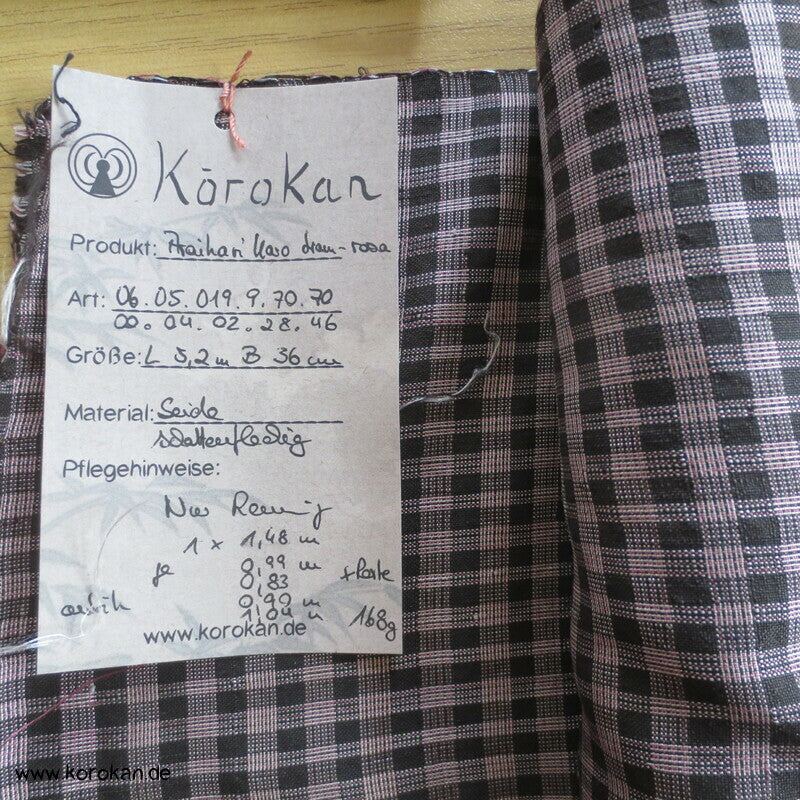 Kōrokan
Produkt: Araihari Karo braun-rosa
Art: 06.05.019.9.70.70
00.04.02.28.46
Größe: L 5,2m B 36 cm
Material: Seide
Pflegehinweise:
Nur
1 x 1,48 m
je 0,99 m
0,83
0,90 m
1,04 m 168g
www.korokan.de
www.korokan.de